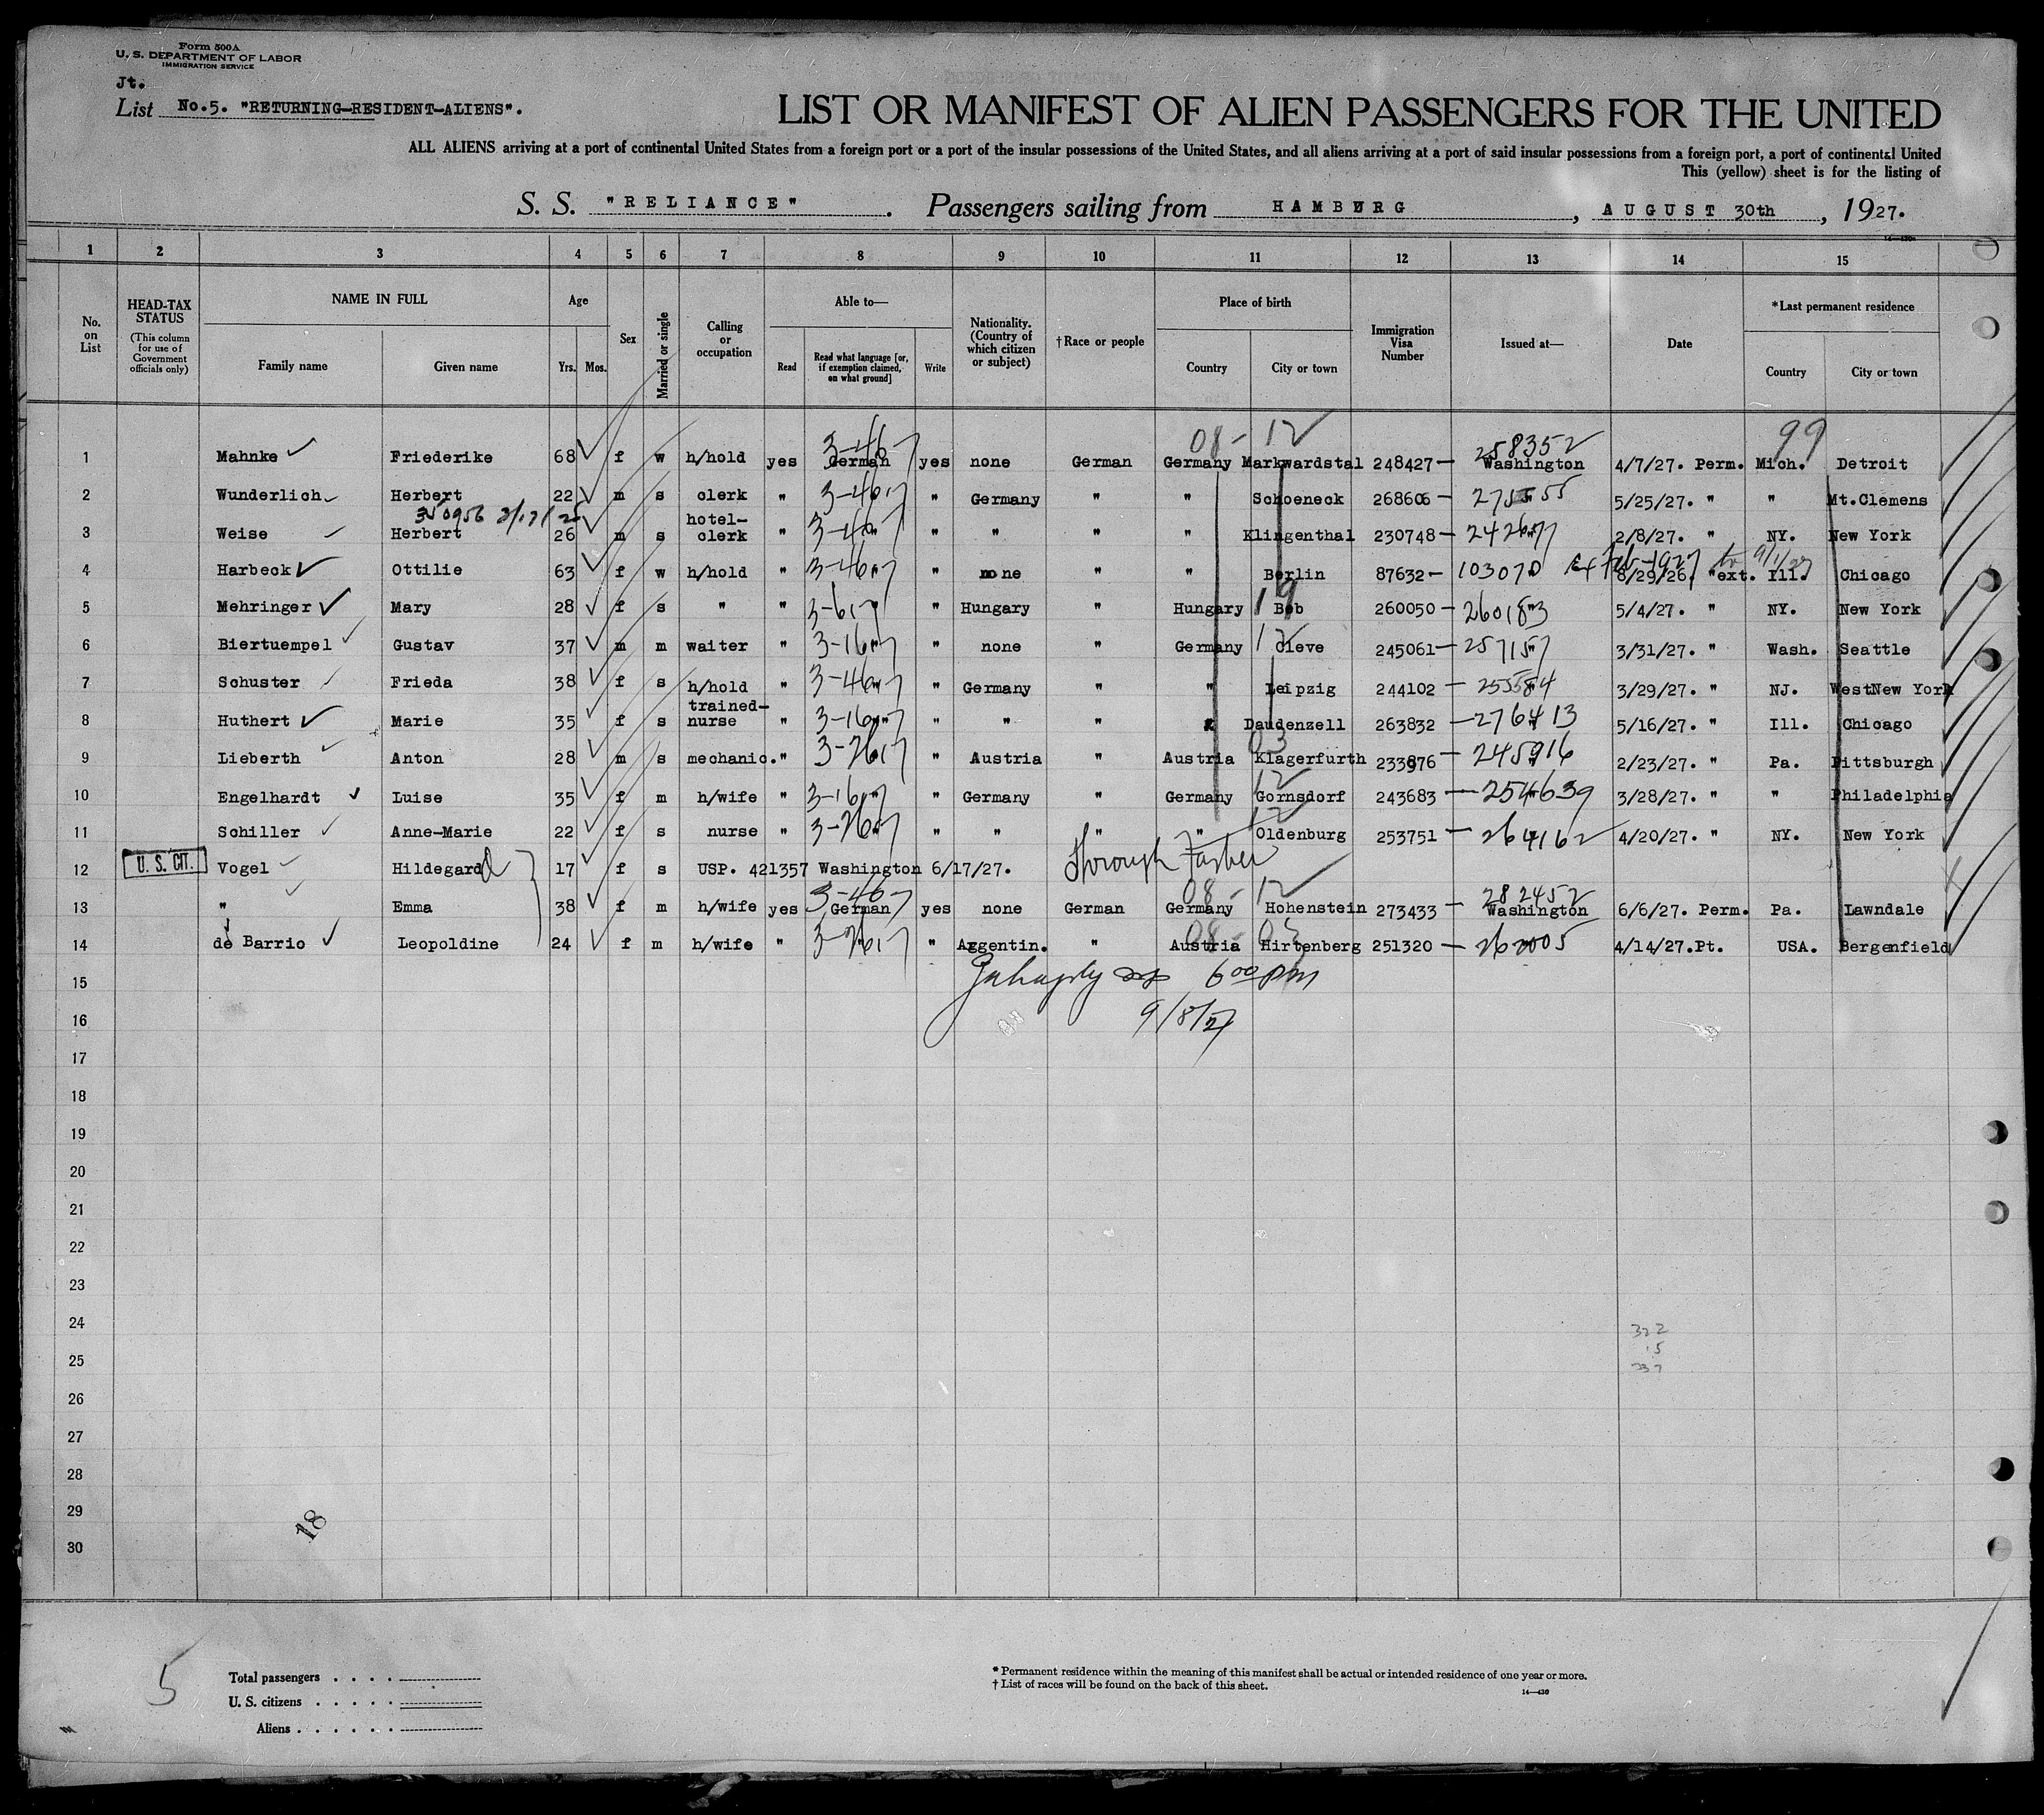 Form 500A
U. S. DEPARTMENT OF LABOR
IMMIGRATION SERVICE
Jt.
List No.5. "RETURNING-RESIDENT-ALIENS".
LIST OR MANIFEST OF ALIEN PASSENGERS FOR THE UNITED
ALL ALIENS arriving at a port of continental United States from a foreign port or a port of the insular possessions of the United States, and all aliens arriving at a port of said insular possessions from a foreign port, a port of continental United
This (yellow) sheet is for the listing of
S. S. "RELIANCE". Passengers sailing from HAMBURG, AUGUST 30th, 1927.
1 2 3 4 5 6 7 8 9 10 11 12 13 14 15
No. on List
HEAD-TAX STATUS (This column for use of Government officials only)
NAME IN FULL Family name Given name
Age Yrs. Mos.
Sex
Married or single
Calling or occupation
Able to— Read Read what language [or, if exemption claimed, on what ground] Write
Nationality. (Country of which citizen or subject)
†Race or people
Place of birth Country City or town
Immigration Visa Number
Issued at—
Date
*Last permanent residence Country City or town
08- 12 258352 99
1 Mahnke Friederike 68 f w h/hold yes 3-46-7 German yes none German Germany Markwardstal 248427- Washington 4/7/27. Perm. Mich. Detroit
2 Wunderlich Herbert 22 m s clerk " " " Germany " " Schoeneck 268606- 275555 5/25/27. " " Mt.Clemens
350956
3 Weise Herbert 26 m s hotel-clerk " " " " " " Klingenthal 230748- 242677 2/8/27. " NY. New York
4 Harbeck Ottilie 63 f w h/hold " " " none " " Berlin 87632- 103070 8/29/26. "ext. Ill. Chicago
5 Mehringer Mary 28 f s " " " " Hungary " Hungary Bob 260050- 260183 5/4/27. " NY. New York
6 Biertuempel Gustav 37 m m waiter " " " none " Germany Cleve 245061- 257157 3/31/27. " Wash. Seattle
7 Schuster Frieda 38 f s h/hold " " " Germany " " Leipzig 244102 - 255584 3/29/27. " NJ. WestNew York
8 Huthert Marie 35 f s trained-nurse " " " " " Daudenzell 263832 - 276413 5/16/27. " Ill. Chicago
9 Lieberth Anton 28 m s mechanic. " " Austria " Austria Klagerfurth 233976 - 245916 2/23/27. " Pa. Pittsburgh
10 Engelhardt Luise 35 f m h/wife " " " Germany " Germany Gornsdorf 243683 - 254639 3/28/27. " " Philadelphia
11 Schiller Anne-Marie 22 f s nurse " " " " " " Oldenburg 253751 - 264162 4/20/27. " NY. New York
12 U. S. CIT. Vogel Hildegard 17 f s USP. 421357 Washington 6/17/27. Through Father
08- 12 282452
13 " Emma 38 f m h/wife yes 3-46-7 German yes none German Germany Hohenstein 273433 - Washington 6/6/27. Perm. Pa. Lawndale
14 de Barrio Leopoldine 24 f m h/wife " " " Argentin. " Austria Hirtenberg 251320 - 262005 4/14/27.Pt. USA. Bergenfield
15 600 pm
16 9/8/27
17
18
19
20
21
22
23
24 322
25 15
337
26
27
28
29 18
30
5
Total passengers
U. S. citizens
Aliens
* Permanent residence within the meaning of this manifest shall be actual or intended residence of one year or more.
† List of races will be found on the back of this sheet.
14—430